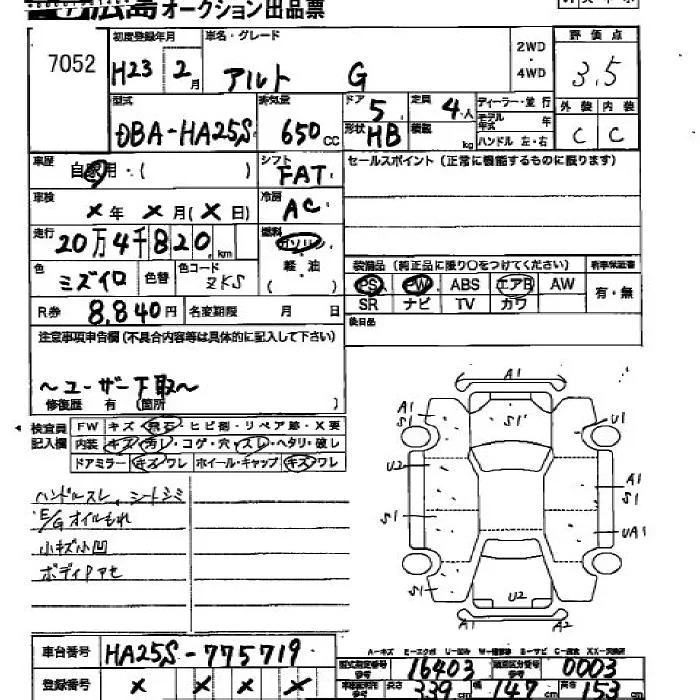 広島オークション出品票
7052
初度登録年月 車名・グレード 2WD・4WD 評価点
H23 2月 アルト G 3.5
型式 排気量 ドア 定員 ディーラー・並行 外装 内装
DBA-HA25S 650cc 5 4人 モデル年式 年 C C
形状 HB 積載 kg ハンドル 左・右
車歴 自家用・( ) シフト FAT セールスポイント(正常に機能するものに限ります)
車検 X年X月(X日) 冷房 AC
走行 20万4千820km 燃料 ガソリン
軽油
( )
色 ミズイロ 色替 色コード ZKS
装備品(純正品に限り〇をつけてください) 新車保証書
PS PW ABS エアB AW 有・無
SR ナビ TV カワ
R券 8.840円 名変期限 月 日 後日品
注意事項申告欄(不具合内容等は具体的に記入して下さい)
〜ユーザー下取〜
修復歴 有 (箇所 )
検査員記入欄 FW キズ・飛石・ヒビ割・リペア跡・X要
内装 キズ・汚レ・コゲ・穴・スレ・ヘタリ・破レ
ドアミラー キズ・ワレ ホイール・キャップ キズ・ワレ
ハンドルスレ、シートシミ
E/Gオイルもれ
小キズ小凹
ボディPアセ
A1
A1 S1 U1
U2
A1
S1
S1
UA1
S1 U2
A1 A2
車台番号 HA25S-775719
型式指定番号 16403 類別区分番号 0003
登録番号 X X X X 長さ 339cm 幅 147cm 高さ 153cm